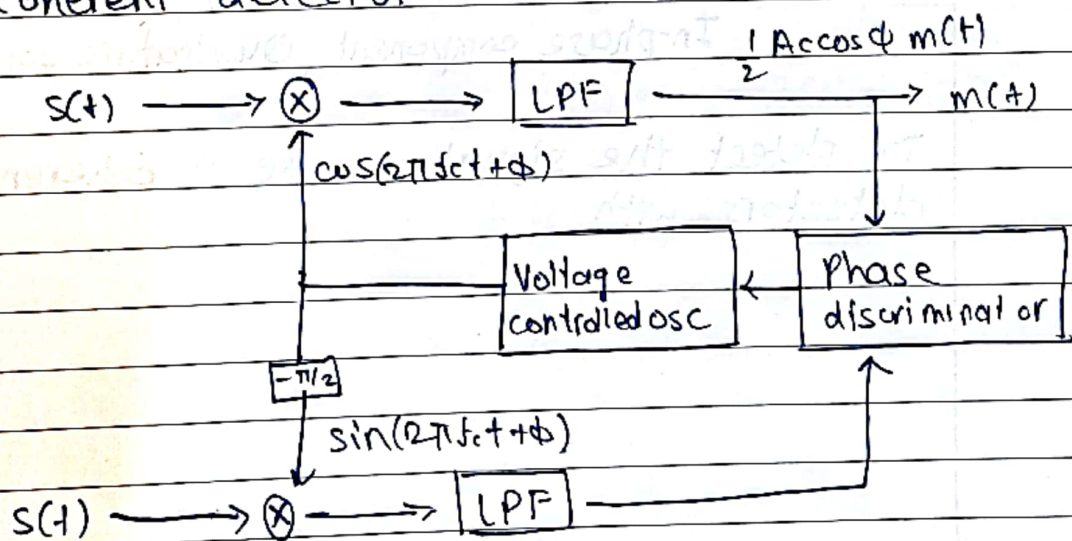 coherent detector
1/2 Ac cos ϕ m(t)
s(t) LPF m(t)
cos(2πfct+ϕ)
Voltage controlled osc
Phase discriminator
-π/2
sin(2πfct+ϕ)
s(t) LPF